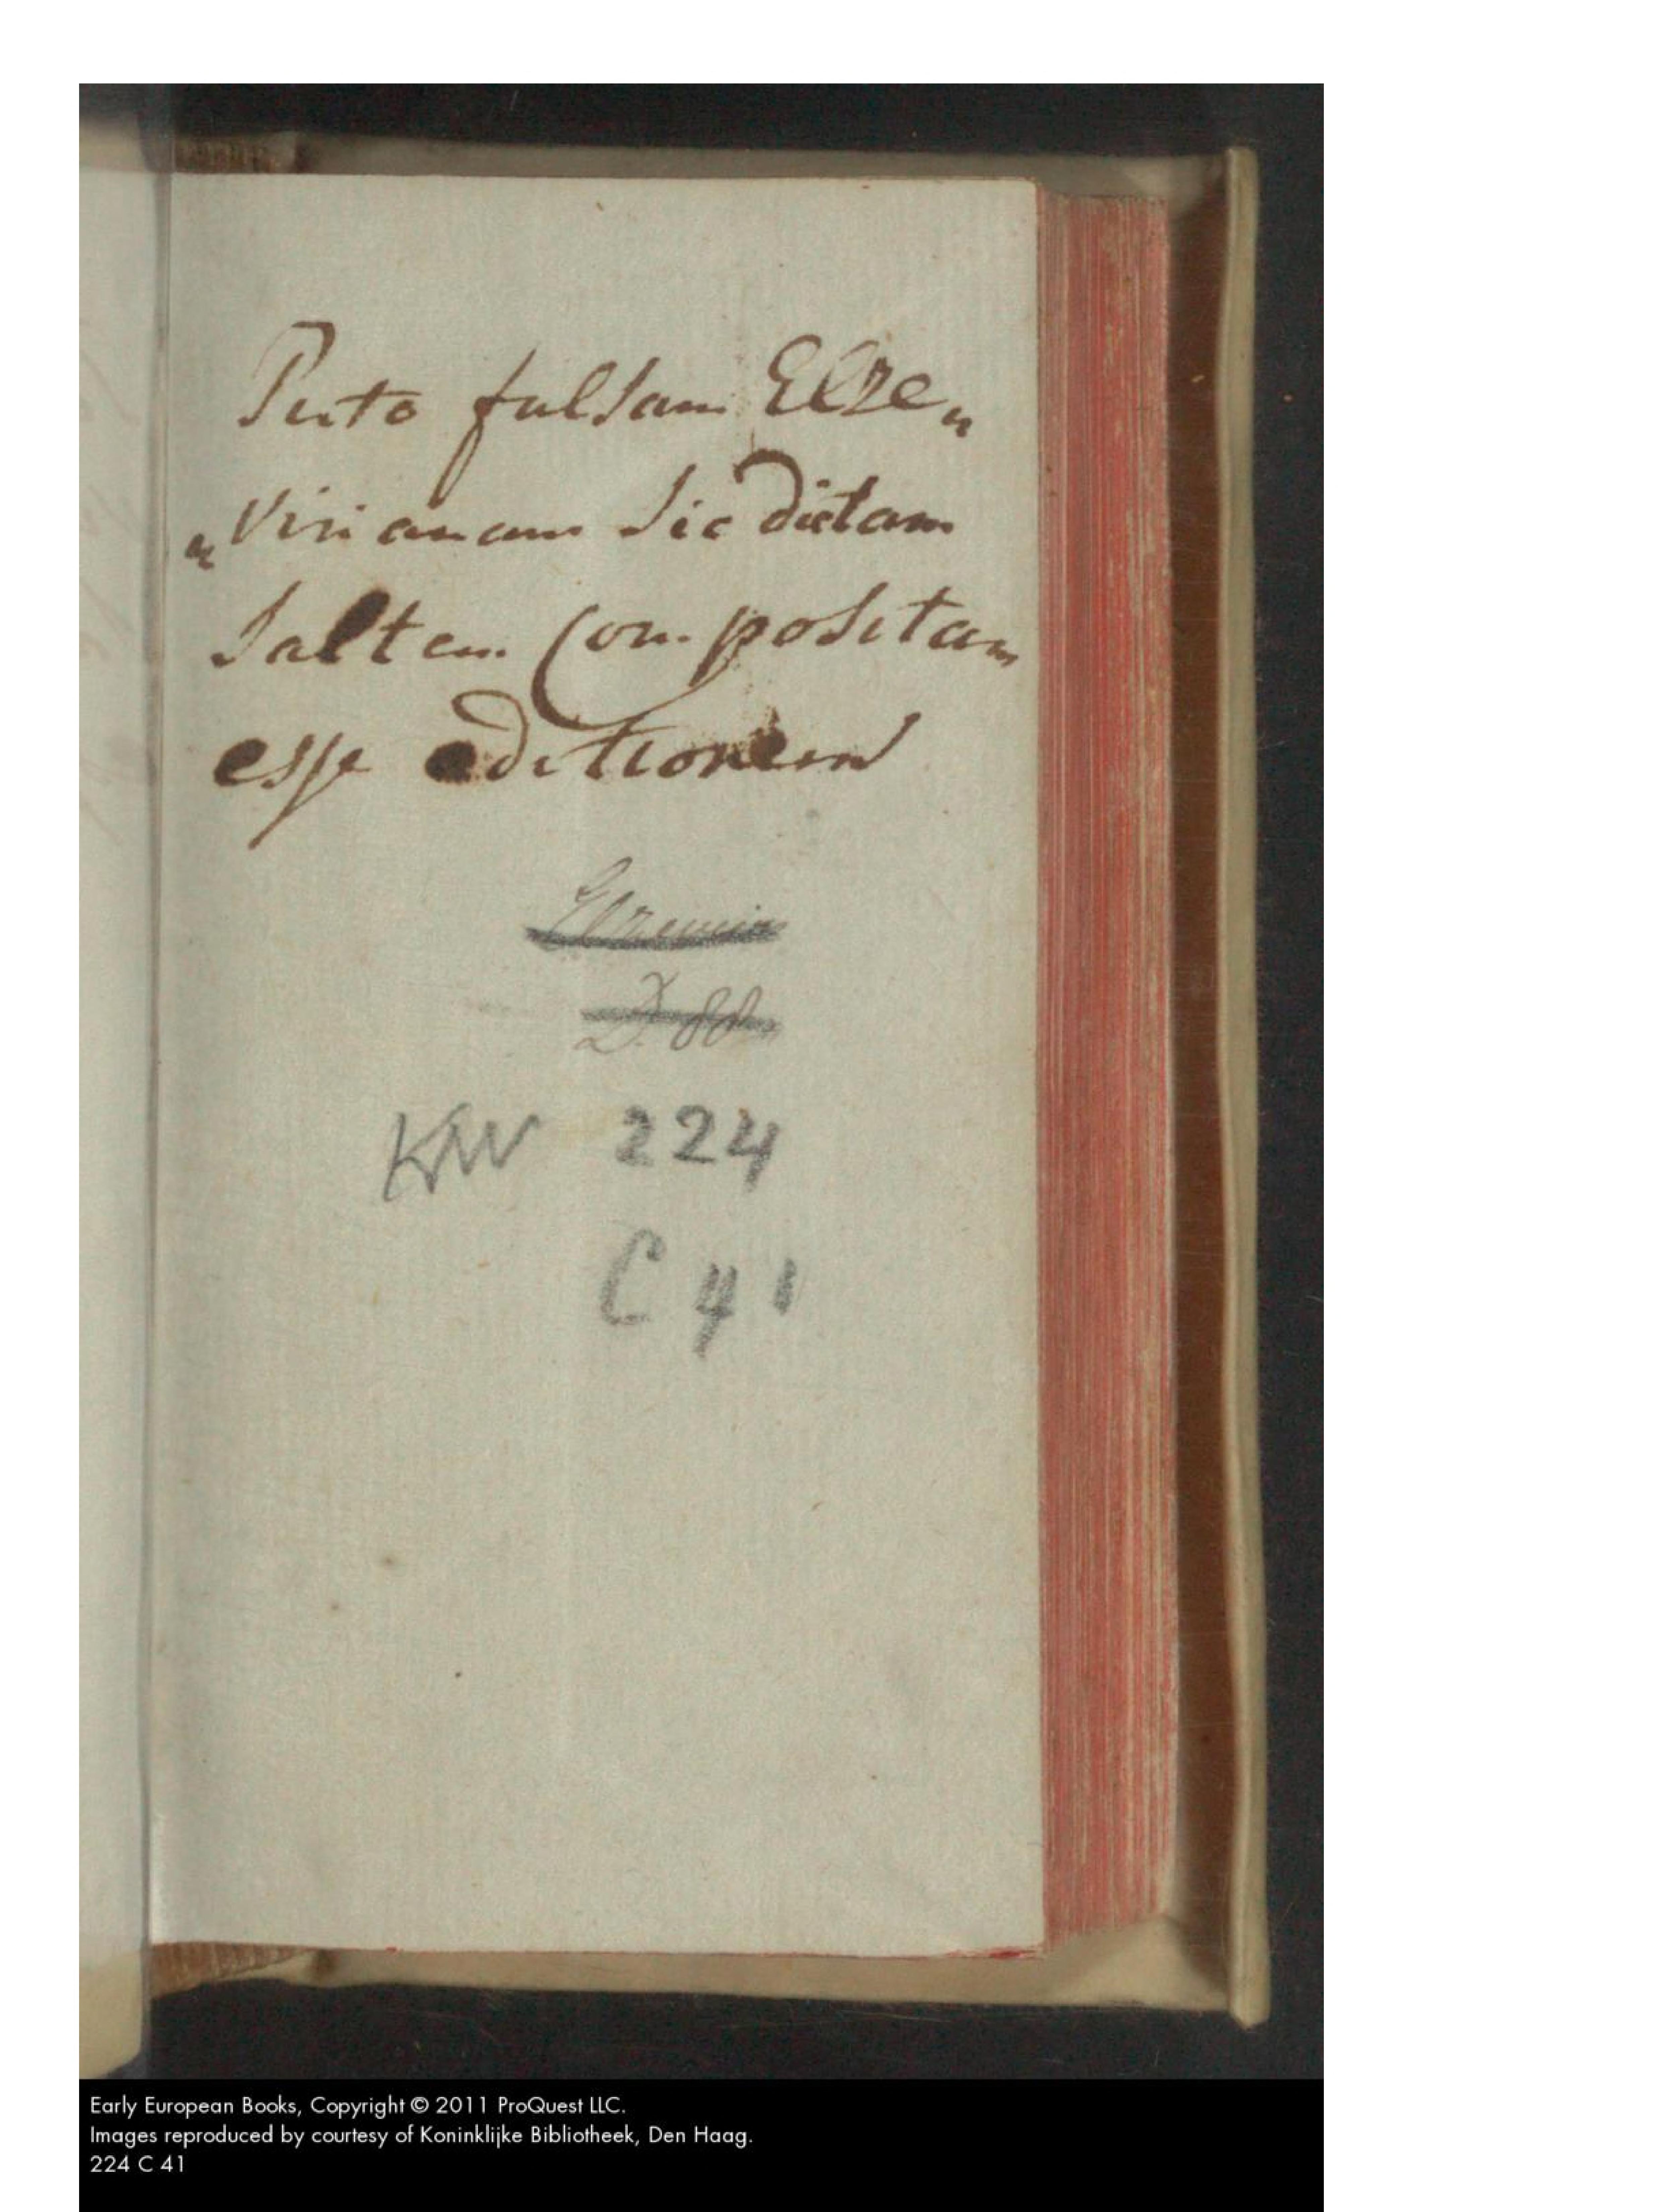 Puto falsam Elze„
„Virianam sic dictam
saltem Compositam
esse editionem
Elzevier
D. 88
KW 224
C 41
Early European Books, Copyright © 2011 ProQuest LLC.
Images reproduced by courtesy of Koninklijke Bibliotheek, Den Haag.
224 C 41